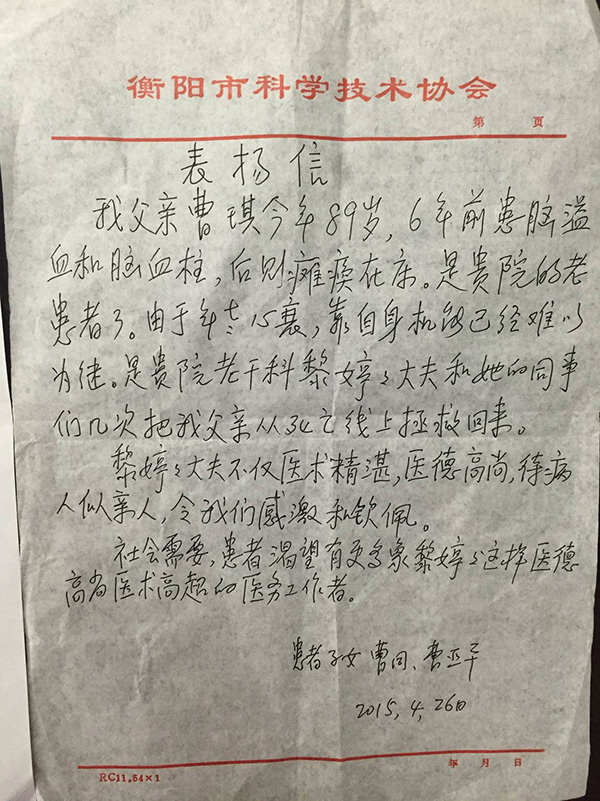 衡阳市科学技术协会
第 页
表扬信
我父亲曹琪今年89岁，6年前患脑溢
血和脑血栓，后则瘫痪在床。是贵院的老
患者了。由于年老心衰，靠自身机能已经难以
为继。是贵院老干科黎婷婷大夫和她的同事
们几次把我父亲从死亡线上拯救回来。
黎婷々大夫不仅医术精湛，医德高尚，待病
人似亲人，令我们感激和钦佩。
社会需要，患者渴望有更多象黎婷々这样医德
高尚医术高超的医务工作者。
患者子女 曹同、曹亚平
2015，4，26日
年 月 日
RC11.54×1